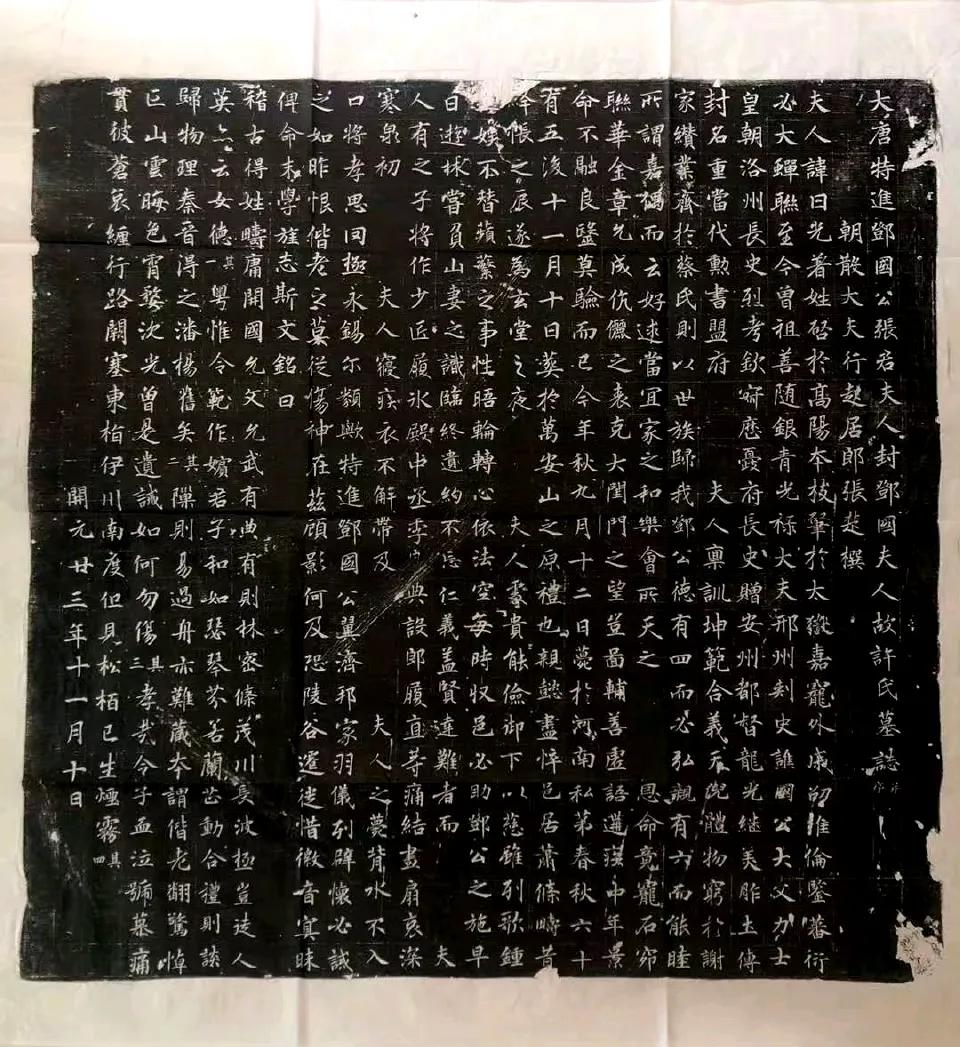 大唐特進鄧國公張君夫人封鄧國夫人故許氏墓誌
朝散大夫行起居郎張楚撰
夫人諱日光著姓啓於高陽本枝肇於太嶽嘉寵外戚的惟倫鑒蕃衍
必大蟬聯至今曾祖善随銀青光祿大夫邢州刺史譙國公大父力士
皇朝洛州長史烈考欽寂應夔府長史贈安州都督龍光継美胙土傳
封名重當代勲書盟府 夫人禀訓坤範合義天倪體物窮於謝
家纘業齊於蔡氏則以世族歸我鄧公德有四而必弘親有六而能睦
所謂嘉耦而云好逑當宜家之和樂會所天之 恩命竟寵石窌
聯華金章允成伉儷之表克大閨門之望豈啚輔善虛語遘疾中年景
命不融良醫莫驗而已今年秋九月十二日薨於河南私第春秋六十
有五後十一月十日葬於萬安山之原禮也親懿盡悴邑居蕭條疇昔
帳之辰遂為玄堂之夜 夫人貴能儉御下以慈雖列歌鍾
娛不替蘋蘩之事性晤輪轉心依法空每時収邑必助鄧公之施早
日逰捄當負山妻之識臨終遺約不忘仁義盖賢達難者而 夫
人有之子將作少匠履氷殿中丞季良典設郎履直等痛結晝扇哀深
寒泉初 夫人寢疾衣不解帶及 夫人之薨漿水不入
口將孝思罔極永錫尓類歟特進鄧國公翼濟邦家羽儀列辟懷必誠
之如昨恨偕老之莫從傷神在茲顧影何及恐陵谷遷徙惜徽音寘昧
俾命末學旌志斯文銘曰
稽古得姓疇庸開國允文允武有典有則林密條茂川長波極豈徒人
英亦云女德其一粤惟令範作嬪君子和如瑟琴芬若蘭芷動合禮則談
歸物理秦晉得之潘楊舊矣其二隟則易過舟亦難藏本謂偕老翻驚悼
亡山雲晦色宵婺沈光曾是遺誡如何勿傷其三孝哉令子血泣號慕痛
貫彼蒼哀纏行路闕塞東指伊川南度但見松栢已生煙霧其四
開元廿三年十一月十日